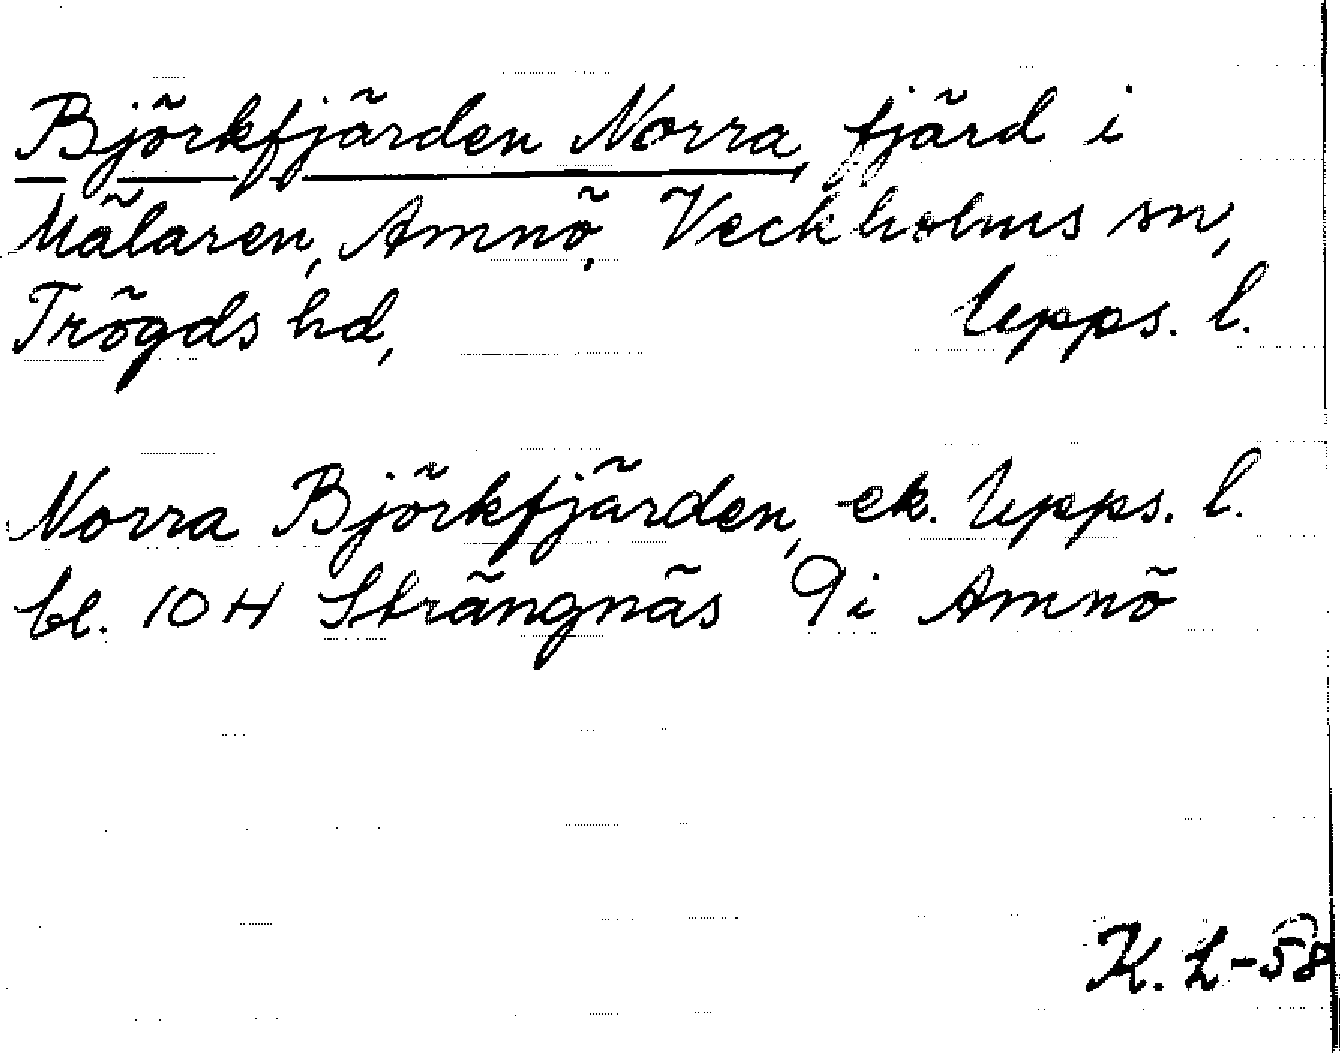 Björkfjärden Norra, fjärd i
Mälaren, Amnö, Veckholms sn,
Trögds hd, Upps. l.
Norra Björkfjärden, ek. Upps. l.
bl. 10 H Strängnäs 9i Amnö
K. L-58